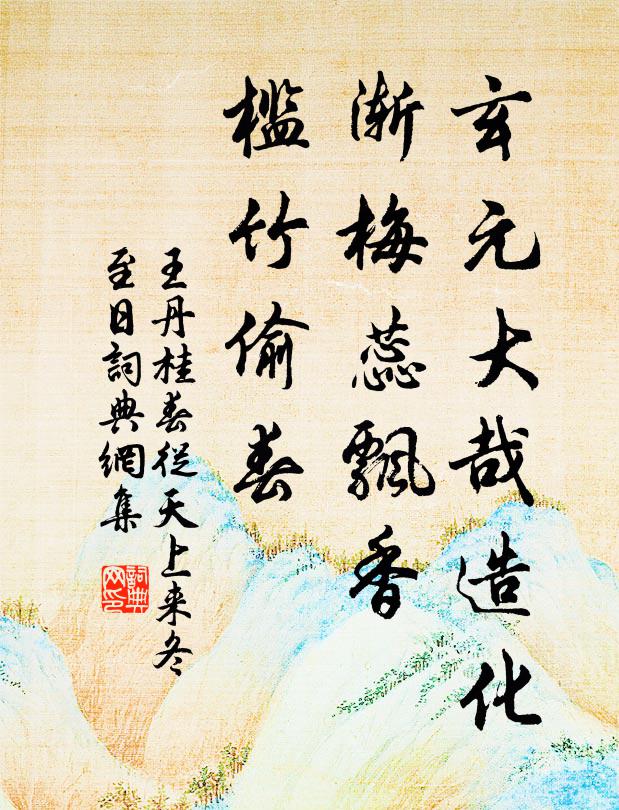 玄元大哉造化
渐梅蕊飘香
槛竹偷春
王丹桂春從天上来冬
至日詞典網集
詞典网印